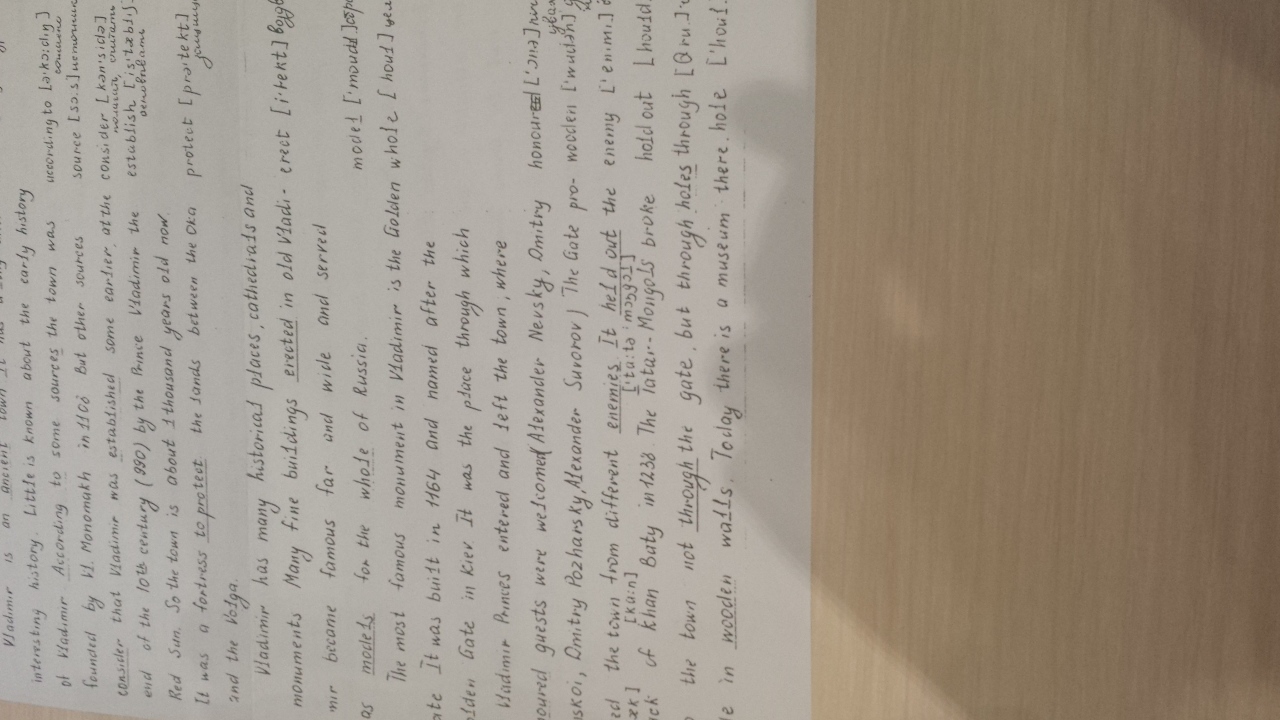 Vladimir is an ancient town It has a
interesting history. Little is known about the early history
of Vladimir According to some sources the town was according to [ə'kɔ:diŋ] согласно
founded by Vl. Monomakh in 1108 But other sources source [sɔ:s] источник
consider that Vladimir was established some earlier, at the consider [kən'sidə] полагать, считать
end of the 10th century (990) by the Prince Vladimir the establish [is'tæbliʃ] основывать
Red Sun. So the town is about 1 thousand years old now
It was a fortress to protect the lands between the Oka protect [prə'tekt]
and the Volga.
Vladimir has many historical places, cathedrals and
monuments Many fine buildings erected in old Vladi- erect [i'rekt]
mir became famous far and wide and served
as models for the whole of Russia. model ['modl]
The most famous monument in Vladimir is the Golden whole [houl]
ate It was built in 1164 and named after the
olden Gate in Kiev. It was the place through which
Vladimir Princes entered and left the town; where
noured guests were welcomed (Alexander Nevsky, Dmitry honour ['ɔnə]
nskoi, Dmitry Pozharsky, Alexander Suvorov) The Gate pro- wooden ['wudən]
ed the town from different enemies. It held out the enemy ['enimi]
æk] [ka:n] ['ta:tə'mɔŋgɔl]
ck of Khan Baty in 1238 The Tatar-Mongols broke hold out [hould
the town not through the gate, but through holes through [θru:]
le in wooden walls. Today there is a museum there. hole ['houl]